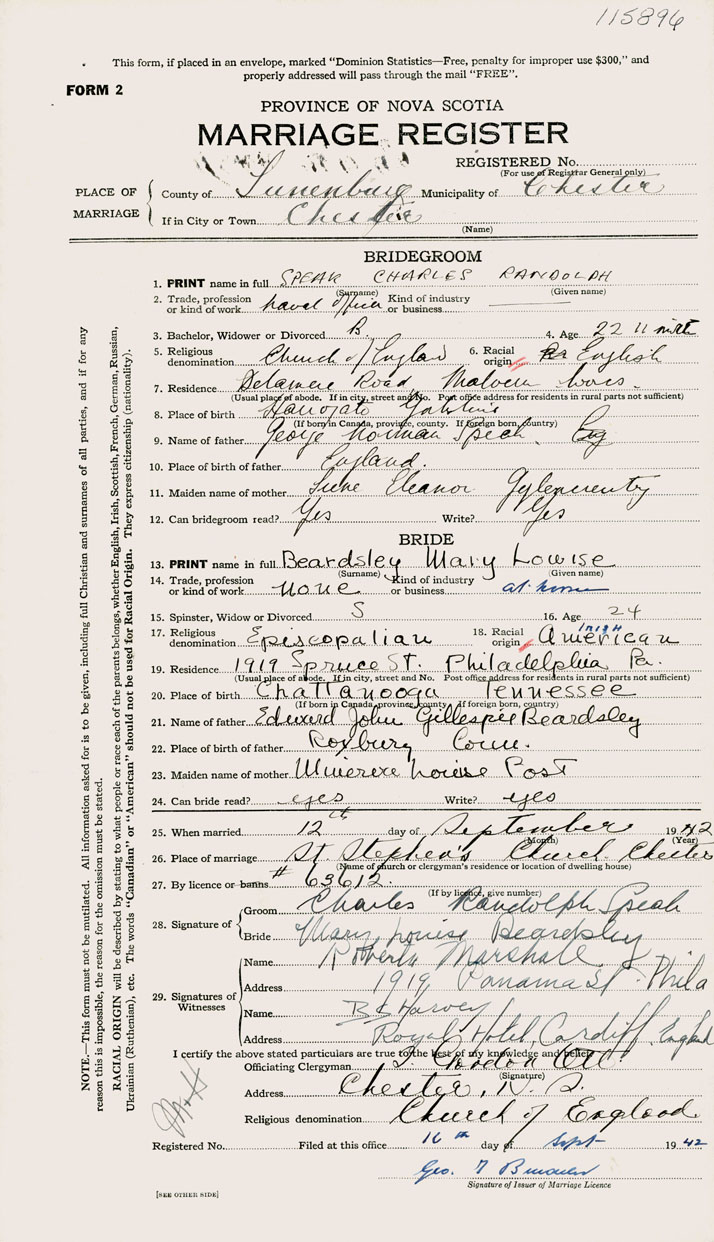 115896
This form, if placed in an envelope, marked "Dominion Statistics—Free, penalty for improper use $300," and
properly addressed will pass through the mail "FREE".
FORM 2
PROVINCE OF NOVA SCOTIA
MARRIAGE REGISTER
REGISTERED No.
(For use of Registrar General only)
PLACE OF MARRIAGE
County of Lunenburg Municipality of Chester
If in City or Town Chester
(Name)
BRIDEGROOM
1. PRINT name in full SPEAK CHARLES RANDOLPH
(Surname) (Given name)
2. Trade, profession or kind of work naval officer Kind of industry or business
3. Bachelor, Widower or Divorced B. 4. Age 22 11 mnth
5. Religious denomination Church of England 6. Racial origin English
7. Residence Delamere Road Malvern Worcs.
(Usual place of abode. If in city, street and No. Post office address for residents in rural parts not sufficient)
8. Place of birth
(If born in Canada, province, county. If foreign born, country)
9. Name of father George Norman Speak Eng
10. Place of birth of father England.
11. Maiden name of mother Eleanor
12. Can bridegroom read? Yes Write? Yes
BRIDE
13. PRINT name in full Beardsley Mary Louise
(Surname) (Given name)
14. Trade, profession or kind of work none Kind of industry or business at home
15. Spinster, Widow or Divorced S 16. Age 24
17. Religious denomination Episcopalian 18. Racial origin American IRISH
19. Residence 1919 Spruce St. Philadelphia Pa.
(Usual place of abode. If in city, street and No. Post office address for residents in rural parts not sufficient)
20. Place of birth Chattanooga Tennessee
(If born in Canada, province, county If foreign born, country)
21. Name of father Edward John Gillespie Beardsley
22. Place of birth of father Roxbury Conn.
23. Maiden name of mother Louise Post
24. Can bride read? yes Write? yes
25. When married 12th day of September 1942
(Month) (Year)
26. Place of marriage St. Stephen's Church Chester
(Name of church or clergyman's residence or location of dwelling house)
27. By licence or banns # 63612.
(If by licence, give number)
28. Signature of
Groom Charles Randolph Speak
Bride Mary Louise Beardsley
29. Signatures of Witnesses
Name Roberta Marshall
Address 1919 Panama St. Phila
Name Harvey
Address Royal Hotel, Cardiff, England
I certify the above stated particulars are true to the best of my knowledge and belief.
Officiating Clergyman Gordon
(Signature)
Address Chester, N. S.
Religious denomination Church of England
Registered No. Filed at this office 16th day of Sept 1942
Geo.
Signature of Issuer of Marriage Licence
[SEE OTHER SIDE]
NOTE.—This form must not be mutilated. All information asked for is to be given, including full Christian and surnames of all parties, and if for any
reason this is impossible, the reason for the omission must be stated.
RACIAL ORIGIN will be described by stating to what people or race each of the parents belongs, whether English, Irish, Scottish, French, German, Russian,
Ukrainian (Ruthenian), etc. The words "Canadian" or "American" should not be used for Racial Origin. They express citizenship (nationality).